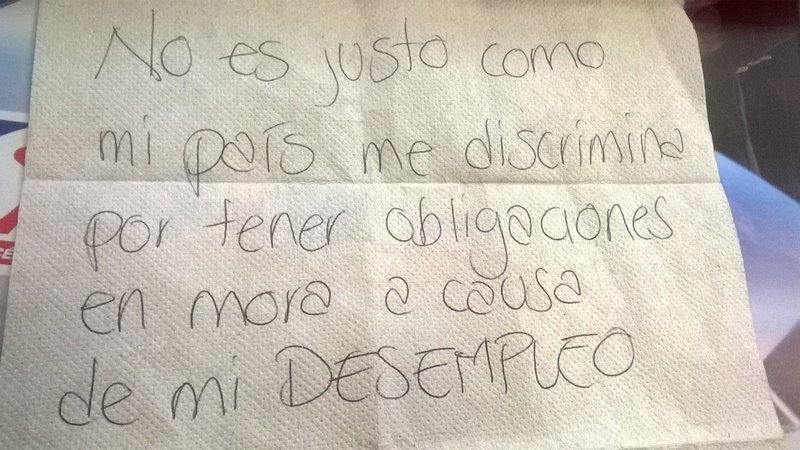 No es justo como
mi país me discrimina
por tener obligaciones
en mora a causa
de mi DESEMPLEO